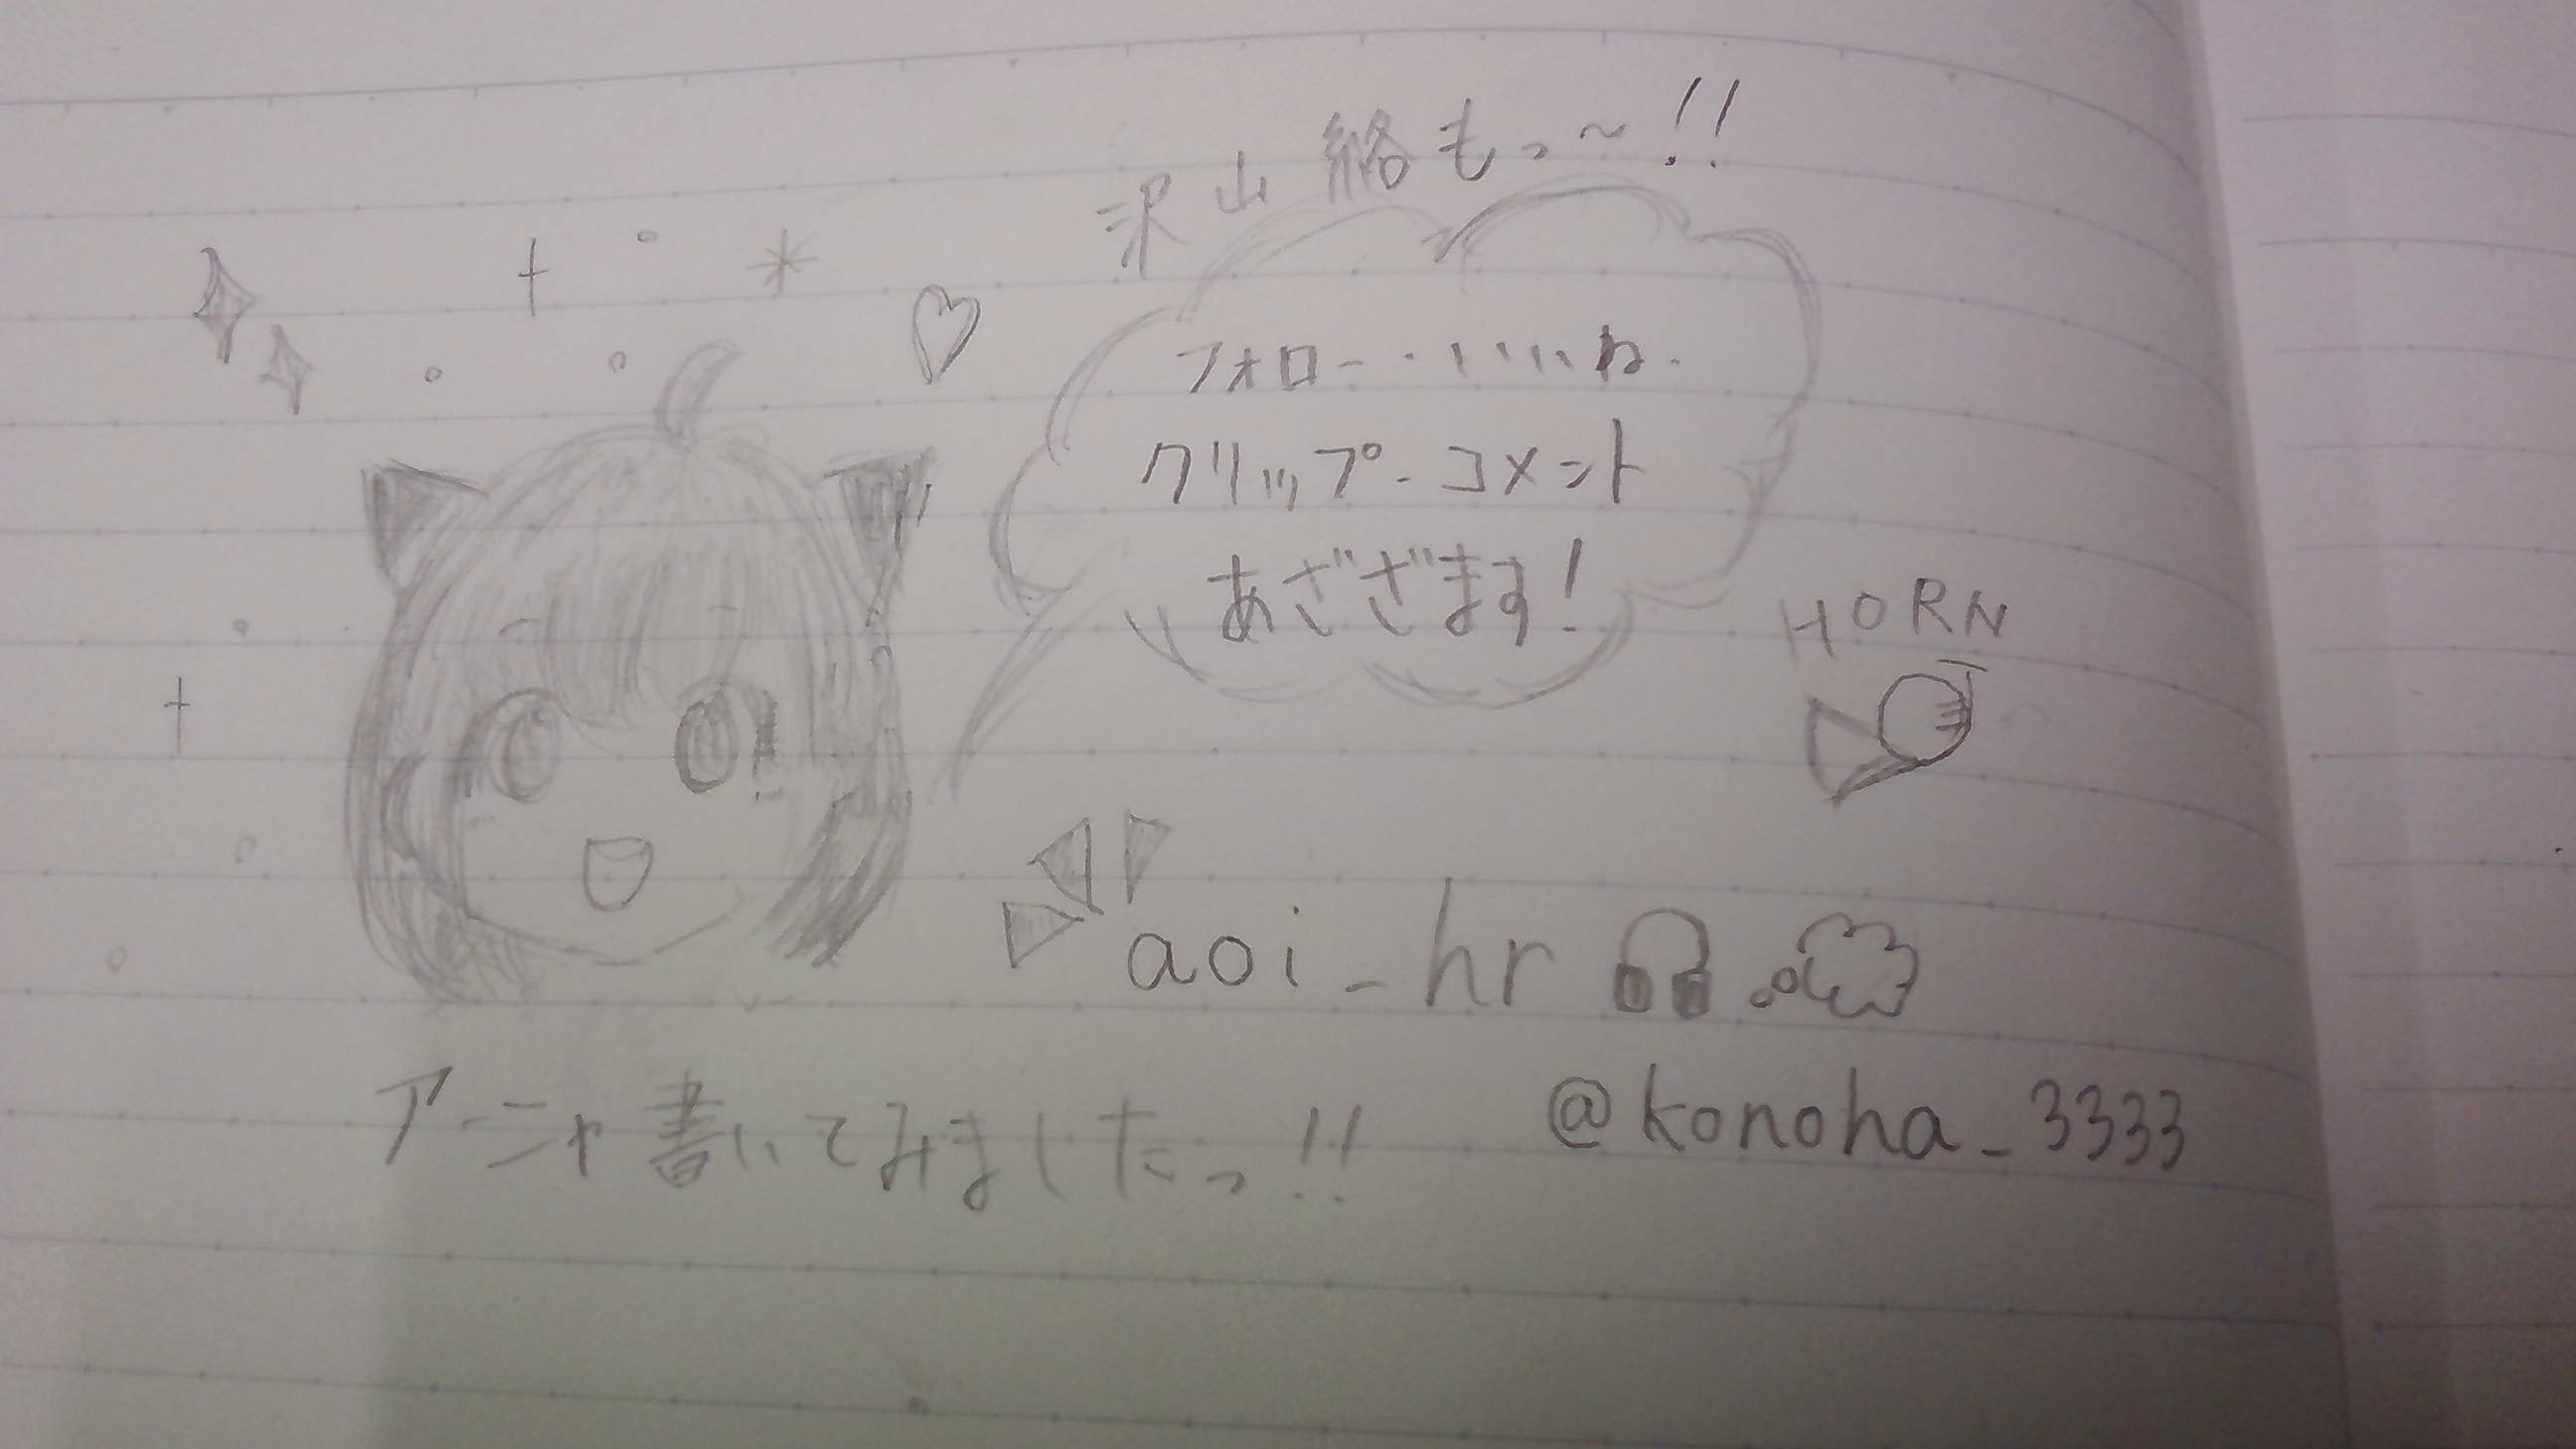 沢山絡もっ~!!
フォロー・いいね・
クリップ・コメント
あざざます!
HORN
aoi_hr
アーニャ書いてみましたっ!!
@konoha_3333